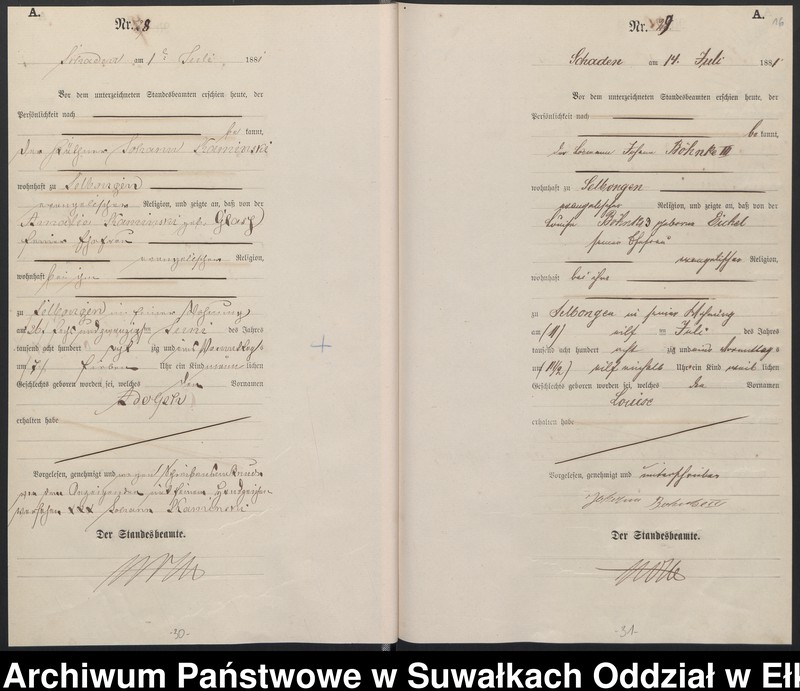 A.
Nr. 8
Schaden am 1ᵗ Juli 1881
Vor dem unterzeichneten Standesbeamten erschien heute, der
Persönlichkeit nach
be kannt,
der Johann Kaminski
wohnhaft zu Selbongen
evangelischer Religion, und zeigte an, daß von der
Amalie Kaminski geb. Glass
seiner Ehefrau
evangelischer Religion,
wohnhaft bei ihm
zu Selbongen in seiner Wohnung
am 26. sechsundzwanzigsten Juni des Jahres
tausend acht hundert acht zig und eins Vormittags
um 7 sieben Uhr ein Kind männlichen
Geschlechts geboren worden sei, welches den Vornamen
Adolph
erhalten habe
Vorgelesen, genehmigt und wegen Schreibensunkunde
von dem Anzeigenden mit seinem Handzeichen
versehen XXX Johann Kaminski
Der Standesbeamte.
-30-
A.
16
Nr. 29
Schaden am 14. Juli 1881
Vor dem unterzeichneten Standesbeamten erschien heute, der
Persönlichkeit nach
be kannt,
der Losmann Johann Böhnke III
wohnhaft zu Selbongen
evangelischer Religion, und zeigte an, daß von der
Louise Böhnke geborene
seiner Ehefrau
evangelischer Religion,
wohnhaft bei ihm
zu Selbongen in seiner Wohnung
am (11) elf ten Juli des Jahres
tausend acht hundert acht zig und eins Vormittags
um (11½) elf einhalb Uhr ein Kind weib lichen
Geschlechts geboren worden sei, welches den Vornamen
Louise
erhalten habe
Vorgelesen, genehmigt und unterschrieben
Der Standesbeamte.
-31-
Archiwum Państwowe w Suwałkach Oddział w Ełk